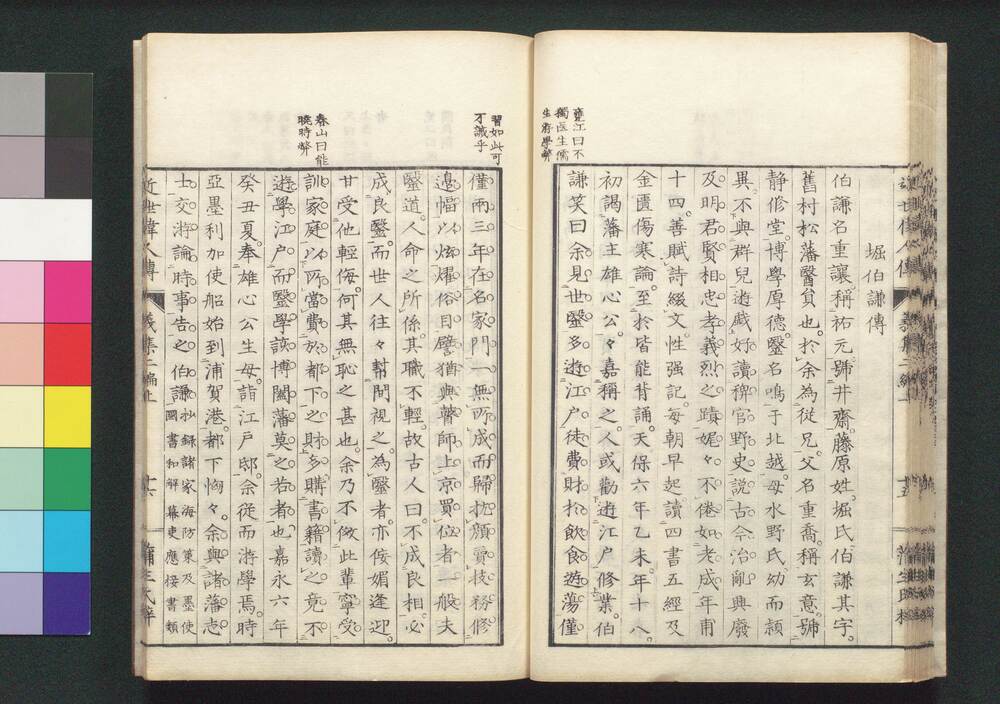 堀伯謙傳
伯謙名重讓。稱祐元。號井齋。藤原姓。堀氏伯謙其字。
舊村松藩醫員也。於余為從兄。父名重喬。稱玄意。號
静修堂。博學厚德。醫名鳴于北越。母水野氏。幼而頴
異。不與群兒遊戱。好讀稗官野史。説古今治亂興廢
及明君賢相忠孝義烈之蹟。娓々不倦如老成。年甫
十四。善賦詩綴文。性强記。每朝早起讀四書五經及
金匱傷寒論。至於皆能背誦。天保六年乙未。年十八。
初謁藩主雄心公。々嘉稱之。人或勸遊江户修業。伯
謙笑曰。余見世醫多遊江户。徒費財於飲食遊蕩。僅
甕江曰不
獨医生儒
生有學弊
僅兩三年在名家門。一無所成而歸。抗顔賣技。務修
邊幅。以炫燿俗目。譬猶與瞽師上京買位者一般。夫
醫道。人命之所係。其職不輕。故古人曰。不成良相。必
成良醫。而世人往々幇間視之。為醫者。亦侫媚逢迎。
甘受他輕侮。何其無恥之甚也。余乃不傚此輩。寧受
訓家庭。以所當費於都下之財。多購書籍讀之。竟不
遊學江户。而醫學該博。闔藩莫之若者也。嘉永六年
癸丑夏。奉雄心公生母。詣江戸邸。余從而游學焉。時
亞墨利加使船始到浦賀港。都下恟々。余與諸藩志
士交游論時事告之伯謙。抄録諸家海防策及墨使
國書和解幕吏應接書類
習如此可
不誡乎
春山曰能
曉時弊
近世偉人傳
義集二編上
十六
蒲生氏梓